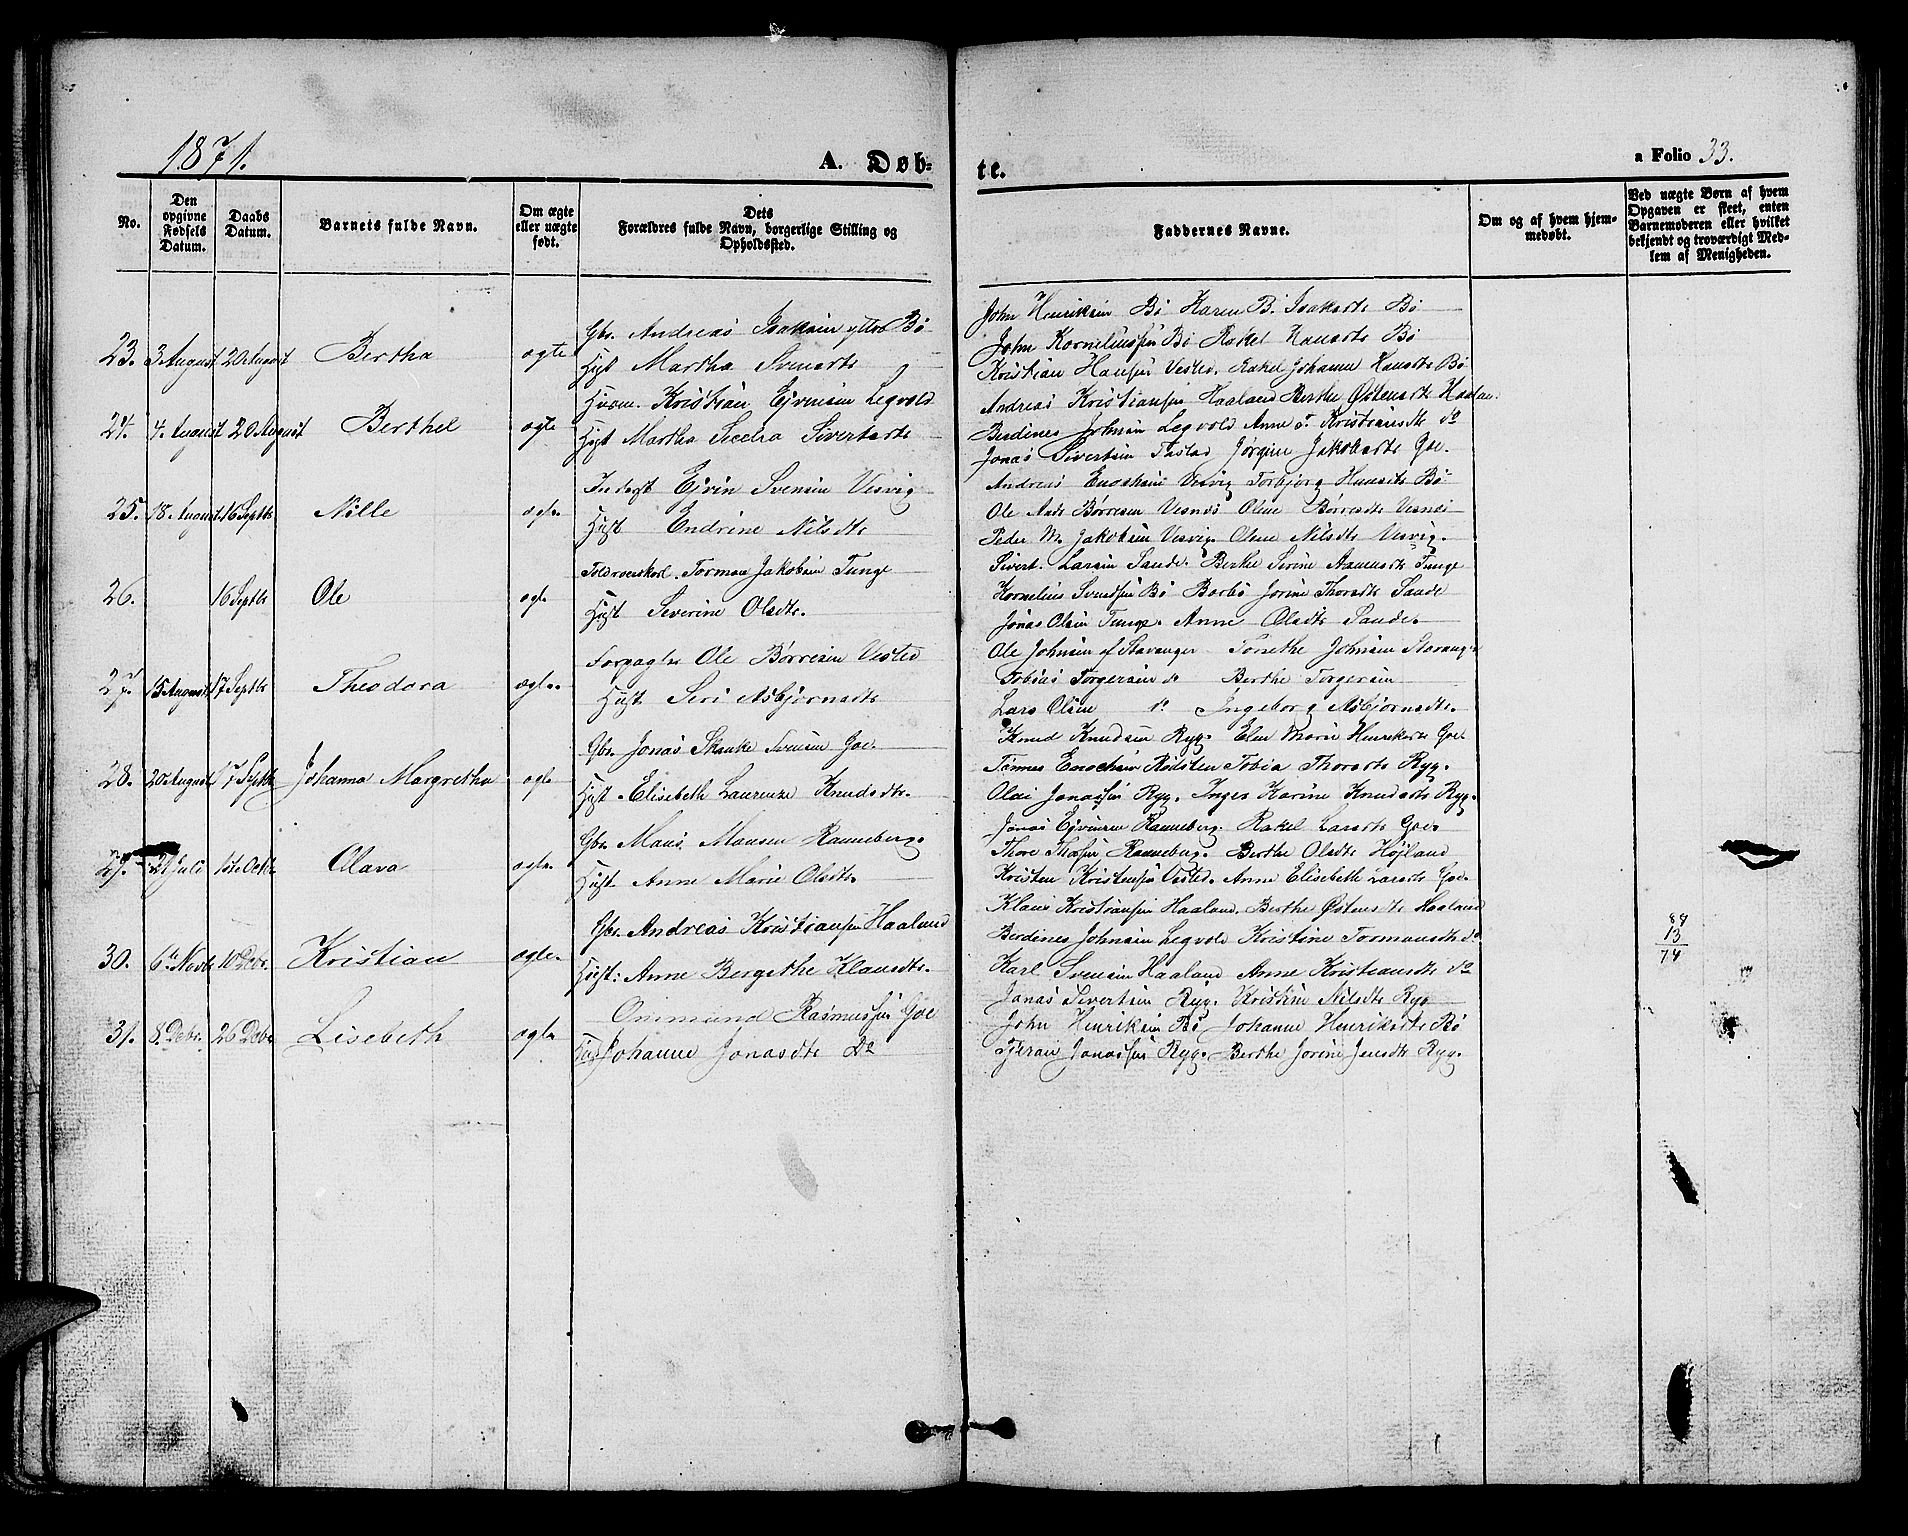 1871.
A. Døb-
te.
a Folio 33.
No.
Den opgivne Fødsels Datum.
Daabs Datum.
Barnets fulde Navn.
Om ægte eller uægte født.
Dets Forældres fulde Navn, borgerlige Stilling og Opholdssted.
Faddernes Navne.
Om og af hvem hjemmedøbt.
Ved uægte Børn af hvem Opgaven er skeet, enten Barnemoderen eller hvilket bekjendt og troværdigt Medlem af Menigheden.
23. 3 August 20 August Bertha ægte
Gbr. Andreas Isaksen ytter Bø
Hust Martha Svensdtr
John Henriksen Bø Karen B. Isaksdtr Bø
John Korneliussen Bø Rakel Hansdtr Bø
Kristian Hansen Vested. Rakel Johanne Hansdtr Bø
24. 4. August 20 August Berthel ægte
Husm. Kristian Ejvensen Legvold
Hust Martha Secelia Sivertsdtr
Andreas Kristiansen Haaland Berthe Østensdtr Haaland
Berdines Johnsen Legvold Anne T. Kristiansdtr do
Jonas Sivertsen Tastad Jørgine Jakobsdtr Goe.
25. 18. August 16 Septbr Nille ægte
Inderst Ejvin Svensen Vesvig
Hust Endrine Nilsdtr
Andreas Enochsen Vesvig Torbjørg Hansdtr Bø
Ole Aads Børresen Vesnes Oline Børresdtr Vesnes
Peder M. Jakobsen Vesvig. Oline Nilsdtr Vesvig.
26. 16 Septbr Ole ægte
Toldroerskarl. Tormon Jakobsen Tunge
Hust Severine Olsdtr.
Sivert Larsen Sande. Berthe Serine Aamundsdtr Tunge
Kornelius Svendsen Bø Barbo Jorine Thorsdtr Sande
Jonas Olsen Tunge. Anne Olsdtr Sande.
27. 15 August 17 Septbr Theodora ægte.
Forpagter Ole Børresen Vested
Hust Seri Asbjørnsdtr
Ole Johnsen af Stavanger Tonethe Johnsen Stavanger
Tobias Torgersen do Berthe Torgersen
Lars Olsen do Ingeborg Asbjørnsdtr.
28. 20 August 17 Septbr Johanna Margretha ægte
Gbr. Jonas Skanke Svensen Goe.
Hust Elisebeth Laurenze Knudsdtr.
Knud Knudsen Ryg. Elen Marie Henriksdtr Goe.
Tønnes Enochsen Rødsten Tobia Thorsdtr Ryg.
Olai Jonassen Ryg. Inger Karine Knudsdtr Ryg.
29. 21 Juli 1ste Octbr. Olava ægte.
Gbr. Maus Mausen Ranneberg.
Hust Anne Marie Olsdtr.
Jonas Ejvensen Ranneberg. Rakel Larsdtr Goe.
Thore Thorsen Ranneberg. Berthe Olsdtr Højland
Kristen Kristensen Vested. Anne Elisebeth Larsdtr Goe.
30. 6te Novbr 10 Debr. Kristian ægte.
Gbr. Andreas Kristiansen Haaland
Hust: Anne Bergethe Klausdtr.
Klaus Kristiansen Haaland. Berthe Østensdtr Haaland
Berdines Johnsen Legvold Kristine Tormansdtr do
Karl Svensen Haaland Anne Kristiansdtr do
88
13
74
31. 8 Debr. 26 Debr Lisebeth ægte
Ommund Rasmussen Goe
Johanne Jonasdtr Do
Jonas Sivertsen Ryg. Kristine Nilsdtr Ryg
John Henriksen Bø Johanne Henriksdtr Bø
Tjeran Jonassen Ryg. Berthe Jorine Jensdtr Ryg.